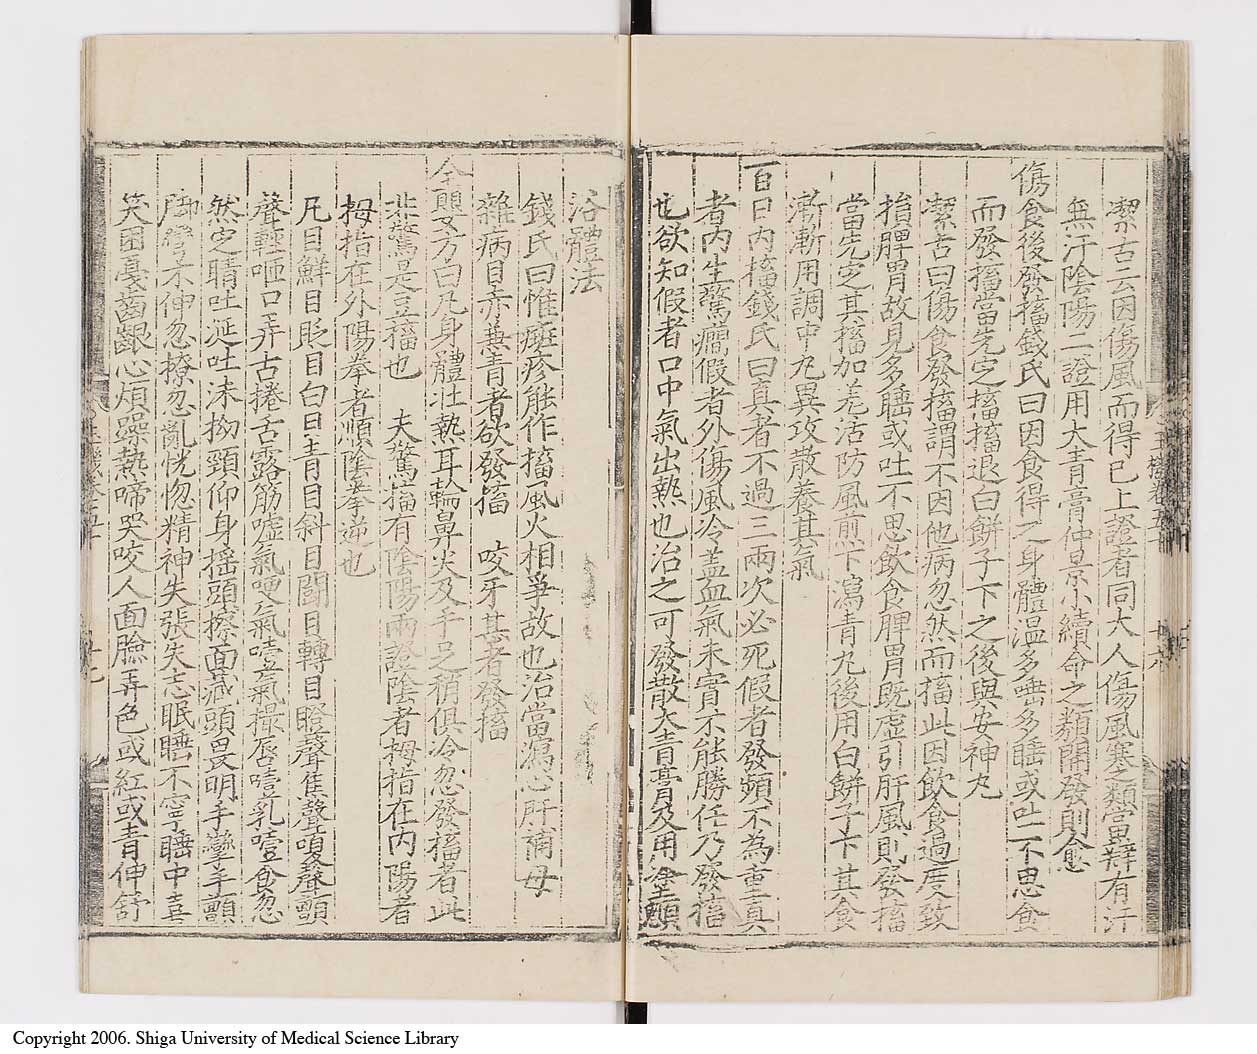 潔古云因傷風而得已上證者同大人傷風寒之類當辯有汗
無汗陰陽二證用大青膏仲景小續命之類開發則愈
傷食後發搐錢氏曰因食得之身體温多唾多睡或吐不思食
而發搐當先定搐搐退白餅子下之後與安神丸
潔古曰傷食發搐謂不因他病忽然而搐此因飲食過度致
損脾胃故見多睡或吐不思飲食脾胃既虛引肝風則發搐
當先定其搐加羗活防風煎下瀉青丸後用白餅子下其食
漸漸用調中丸異攻散養其氣
百日内搐錢氏曰真者不過三兩次必死假者發頻不為重真
者内生驚癇假者外傷風冷盖血氣未實不能勝任乃發搐
也欲知假者口中氣出熱也治之可發散大青膏及用塗䪿
浴體法
錢氏曰惟癍疹能作搐風火相爭故也治當瀉心肝補母
雜病目赤兼青者欲發搐　咬牙甚者發搐
全嬰方曰凡身體壯熱耳輪鼻尖及手足稍俱冷忽發搐者此
非驚是豆搐也　夫驚搐有陰陽兩證陰者拇指在内陽者
拇指在外陽拳者順陰拳逆也
凡目鮮目眨目白目青目斜目鬪目轉目瞪聲焦聲嗄聲顫
聲輕咂口弄舌捲舌露筋噓氣哽氣噎氣撮唇噎乳噎食忽
然定睛吐涎吐沫拗頸仰身揺頭擦面藏頭畏明手攣手顫
脚攣不伸忽撩忽亂恍惚精神失張失志眠睡不寧睡中喜
笑困憂齒齦心煩躁熱啼哭咬人面臉弄色或紅或青伸舒